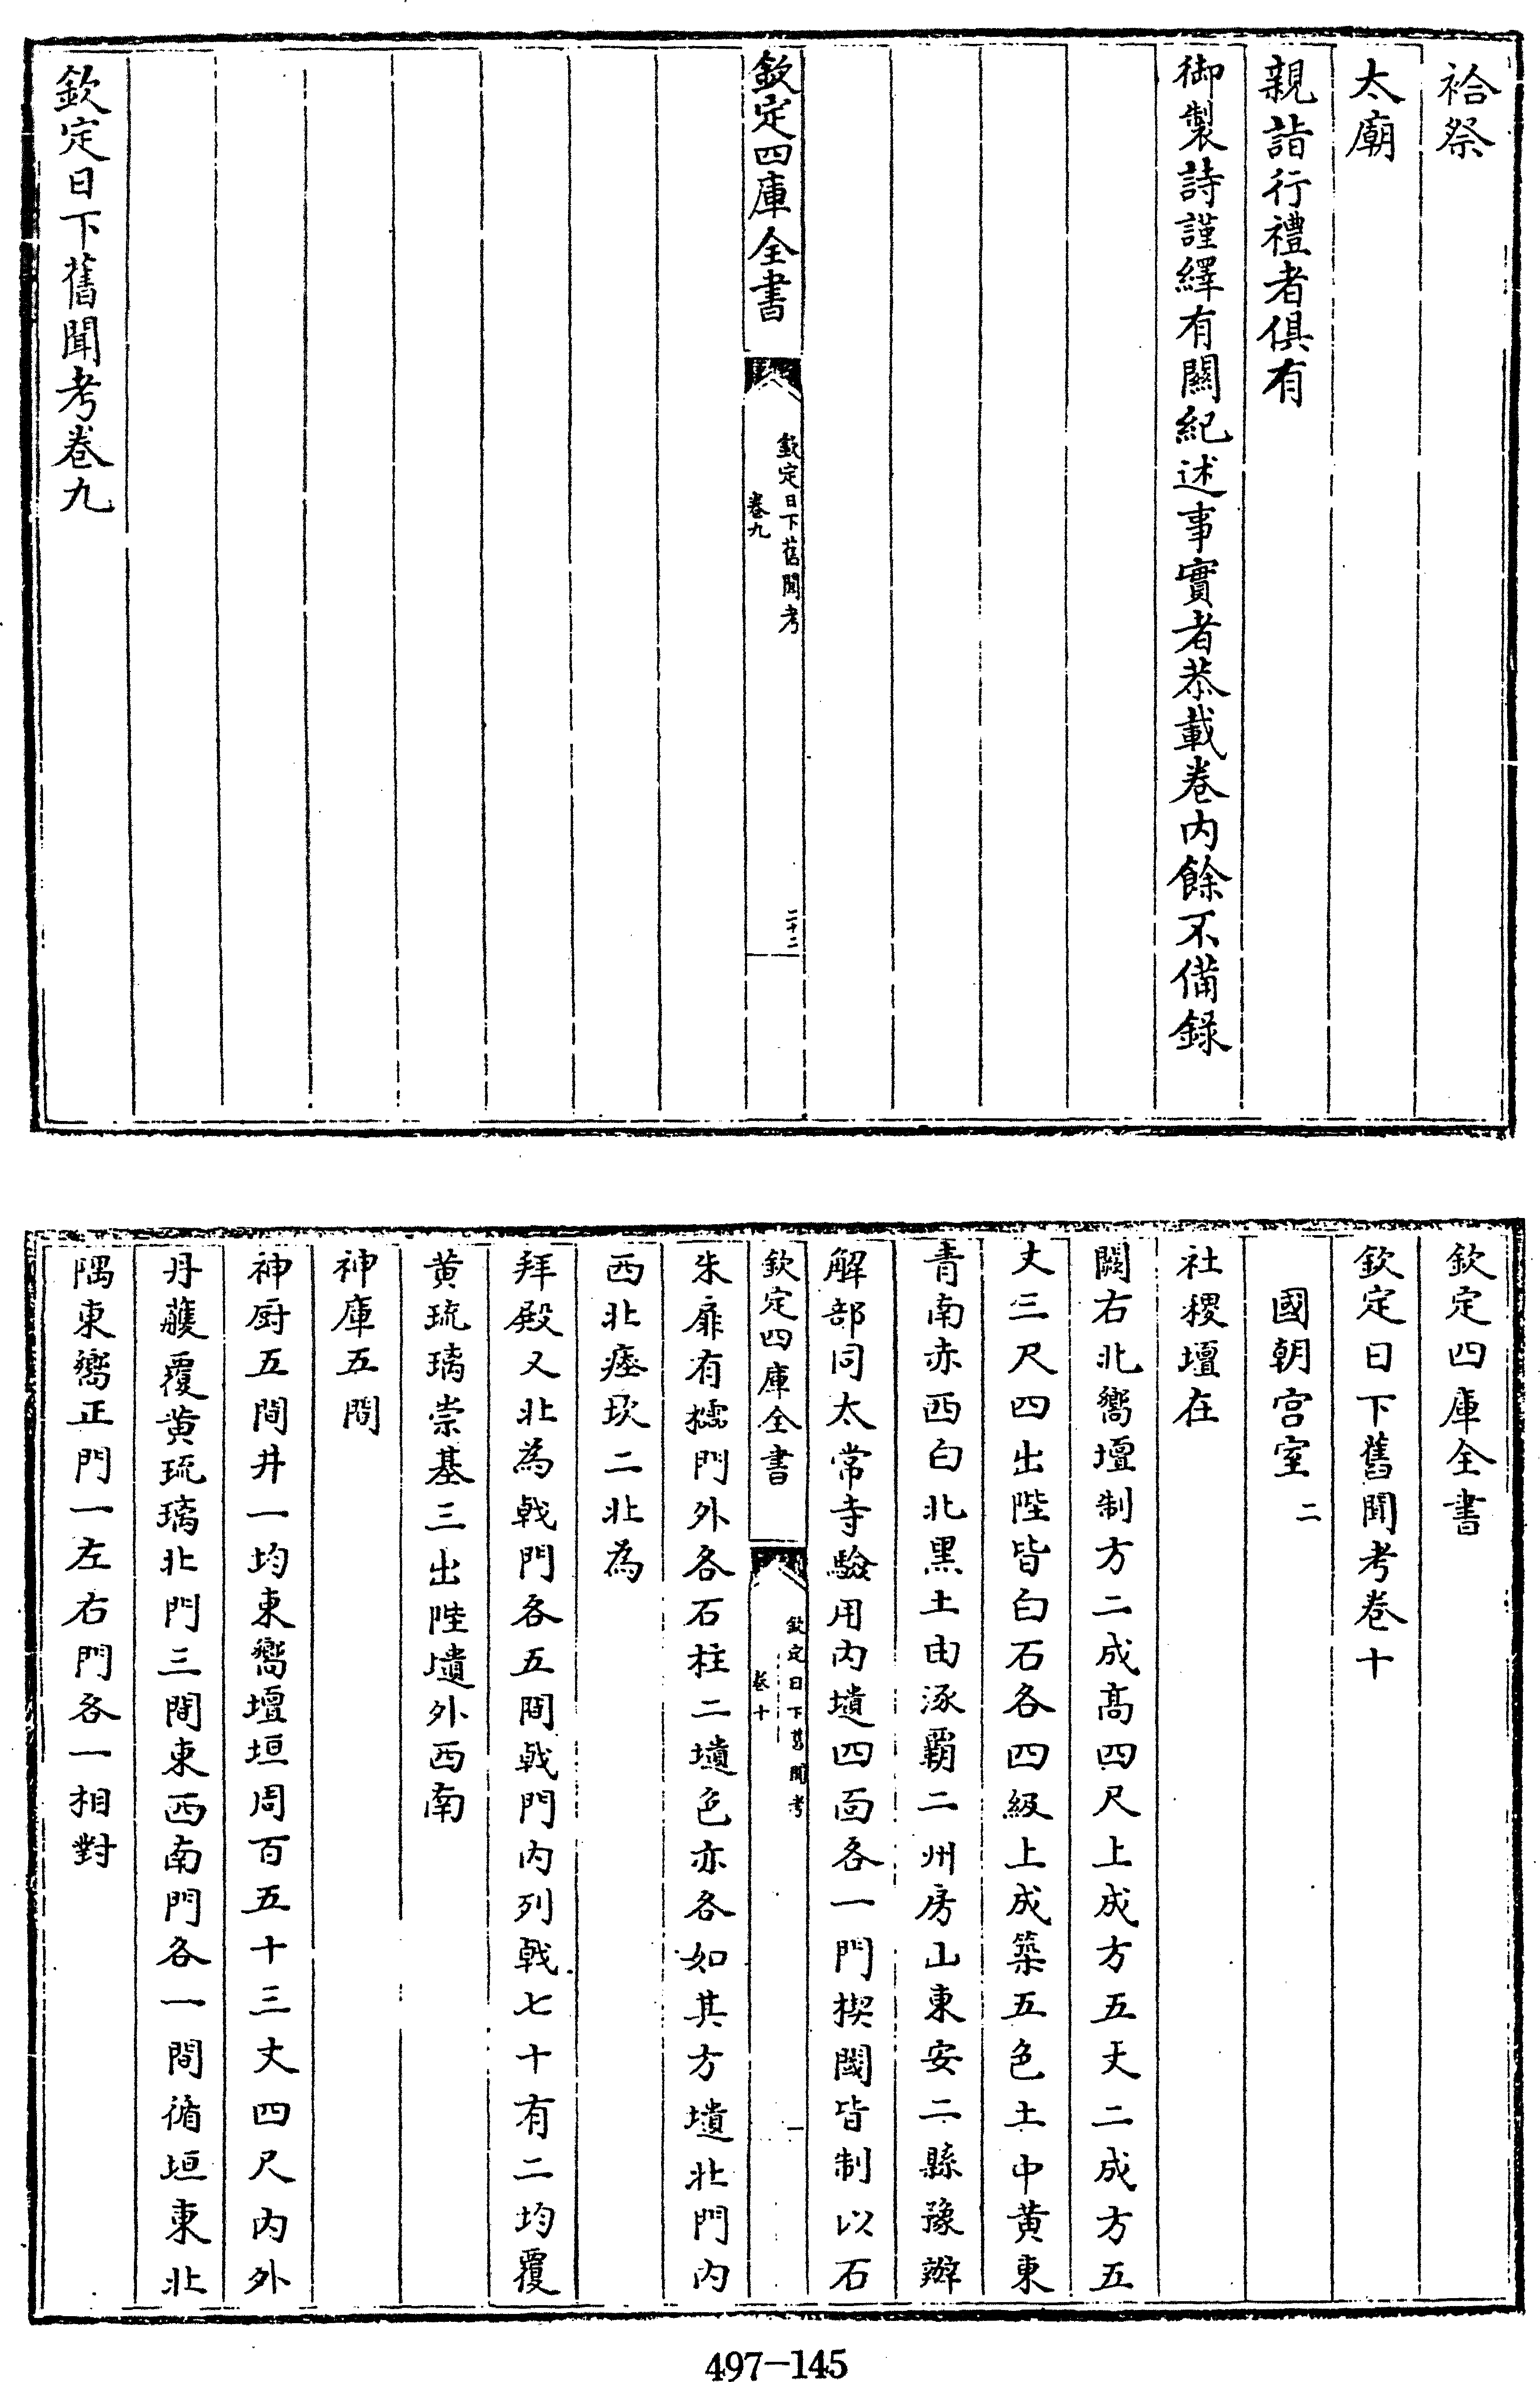 祫祭
太廟
親詣行禮者俱有
御製詩謹繹有闗紀述事實者恭載卷内餘不備録
欽定四庫全書
欽定日下舊聞考
卷九
二十二
欽定日下舊聞考卷九
欽定四庫全書
欽定日下舊聞考卷十
國朝宫室二
社稷壇在
闕右北嚮壇制方二成髙四尺上成方五丈二成方五
丈三尺四出陛皆白石各四級上成築五色土中黄東
青南赤西白北黒土由涿覇二州房山東安二縣豫辦
解部同太常寺驗用内壝四面各一門楔閾皆制以石
欽定四庫全書
欽定日下舊聞考
卷十
一
朱扉有櫺門外各石柱二壝色亦各如其方壝北門内
西北瘞坎二北為
拜殿又北為戟門各五間戟門内列戟七十有二均覆
黄琉璃崇基三出陛壝外西南
神庫五間
神厨五間井一均東嚮壇垣周百五十三丈四尺内外
丹雘覆黄琉璃北門三間東西南門各一間循垣東北
隅東嚮正門一左右門各一相對
497-145